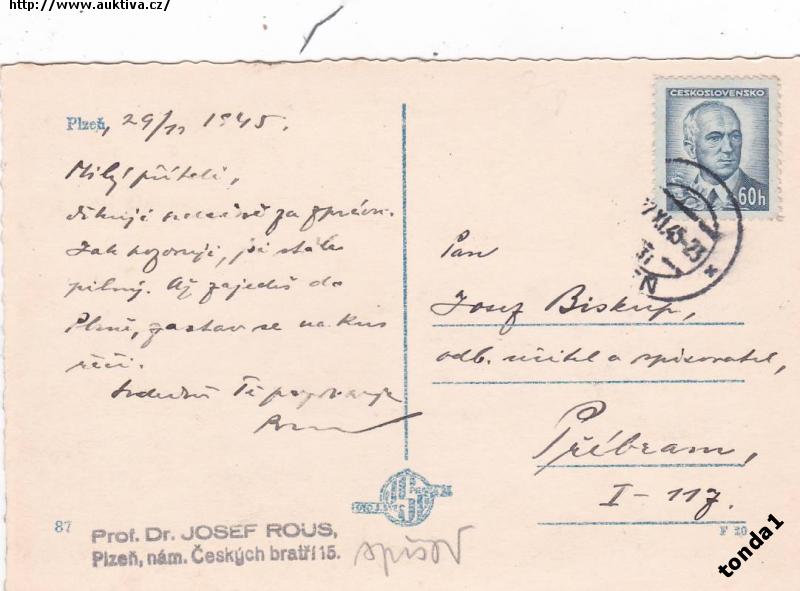 http://www.auktiva.cz/
ČESKOSLOVENSKO
60h
XI.45-23
Plzeň, 29/11 1945.
Milý příteli,
děkuji za zprávu.
Jak pozoruji, jsi stále
pilný. Až zajedeš do
Plzně, zastav se na kus
řeči.
Srdečně Tě pozdravuje
Pan
Josef Biskup,
odb. učitel a spisovatel,
Příbram,
I-117.
87
F 20
Prof. Dr. JOSEF ROUS,
Plzeň, nám. Českých bratří 15.
spisov
tonda1